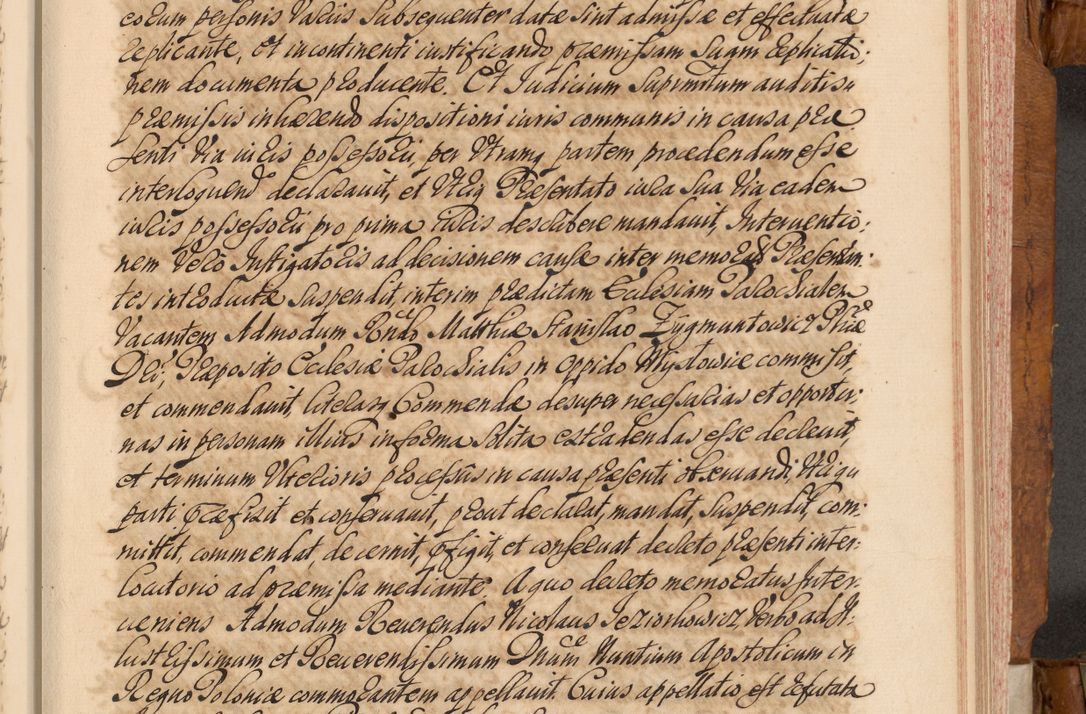 eorum personis variis subsequenter datæ sint admissæ et effectuatæ
replicante, et incontinenti iustificando præmissam suam replicatio:
nem documenta producente. Et Iudicium Suprimitum auditis
præmissis inhærendo dispositioni iuris communis in causa præ
senti via iuris possessorii, per utramq partem procedendum esse
interloquend declaravit, et utriq Præsentato iura sua via eadem
iuris possessorii pro prima iuris describere mandavit, Interventio:
nem vero Instigatoris ad decisionem causæ inter memoratos Præsentan:
tes introductæ suspendit, interim prædictam Ecclesiam Parochialem
vacantem Admodum Rndo Matthiæ Stanislao Zygmuntowicz Phiæ
Dri, Præposito Ecclesiæ Parochialis in oppido Mysłowice commisit,
et commendavit, literasq Commendæ desuper necessarias et opportu:
nas in personam illius in forma solita extradendas esse decrevit,
et terminum ulterioris processus in causa præsenti observandi, utriq
parti præfixit et conservavit, prout declarat, mandat, suspendit, com:
mittit, commendat, decernit, præfigit, et conservat decreto præsenti inter:
locutorio ad præmissa mediante. A quo decreto memoratus Inter:
veniens Admodum Reverendus Nicolaus Jeziorkowicz verbo ad Il:
lustrissimum et Reverendissimum Dnum Nuntium Apostolicum in
Regno Poloniæ commorantem appellavit. Cuius appellatio est refutata